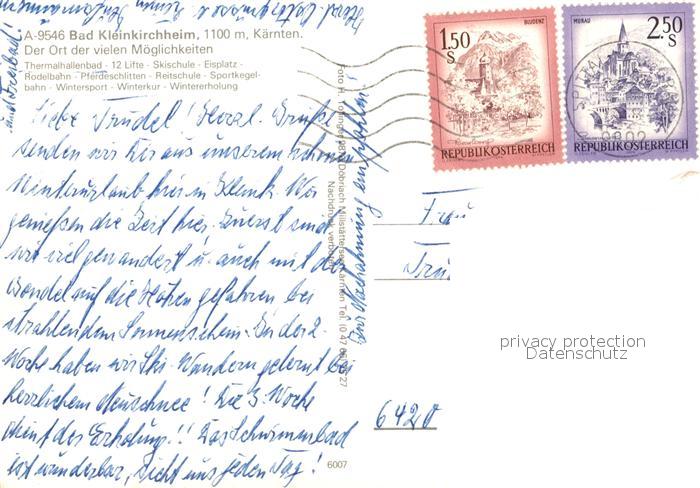 A-9546 Bad Kleinkirchheim, 1100 m, Kärnten.
Der Ort der vielen Möglichkeiten
Thermalhallenbad - 12 Lifte - Skischule - Eisplatz -
Rodelbahn - Pferdeschlitten - Reitschule - Sportkegel-
bahn - Wintersport - Winterkur - Wintererholung
Liebe Trudel! Herzl. Grüße
senden wir Dir aus unserem schönen
Winterurlaub hier in Kleink. Wir
genießen die Zeit hier. Zuerst sind
wir viel gewandert u. auch mit der
Gondel auf die Höhen gefahren bei
strahlendem Sonnenschein. In der 2.
Woche haben wir Ski-Wandern gelernt bei
herrlichem Neuschnee! Die 3. Woche
dient der Erholung!! Das Schwimmbad
ist wunderbar, zieht uns jeden Tag!
6007
Nachdruck verboten
BLUDENZ
1.50
S
REPUBLIK ÖSTERREICH
MURAU
2.50
S
REPUBLIK ÖSTERREICH
9802
Frau
Tru
6420
privacy protection
Datenschutz